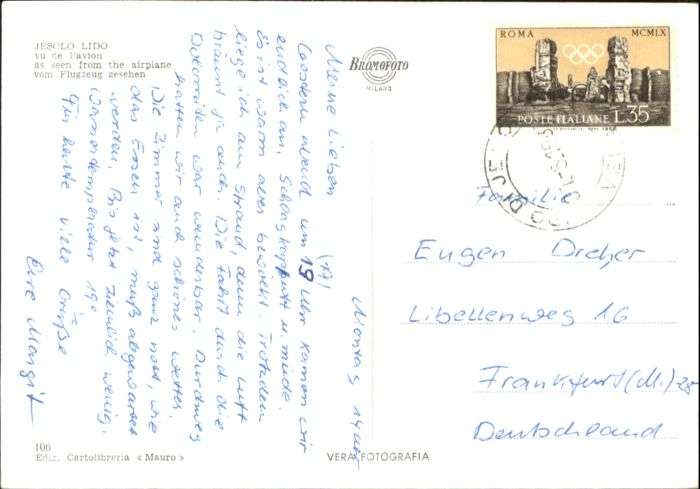 JESOLO LIDO
vu de l'avion
as seen from the airplane
vom Flugzeug gesehen
BROMOFOTO
MILANO
ROMA MCMLX
POSTE ITALIANE L.35
Montag 14 Uhr
Meine Lieben
(19)
Gestern abend um 19 Uhr kamen wir
endlich an. Schön kaputt u. müde.
Es ist warm aber bewölkt. Trotzdem
liege ich am Strand, denn die Luft
bräunt ja auch. Die Fahrt durch die
Dolomiten war wunderbar. Durchweg
hatten wir auch schönes Wetter.
Die Zimmer sind ganz nett, wie
das Essen ist, muß abgewartet
werden. Bis jetzt ziemlich wenig.
Wassertemperatur 19°
Für heute viele Grüße
Eure Margit
Familie
Eugen Dreher
Libellenweg 16
Frankfurt (M.) 28
Deutschland
106
Ediz. Cartolibreria « Mauro »
VERA FOTOGRAFIA